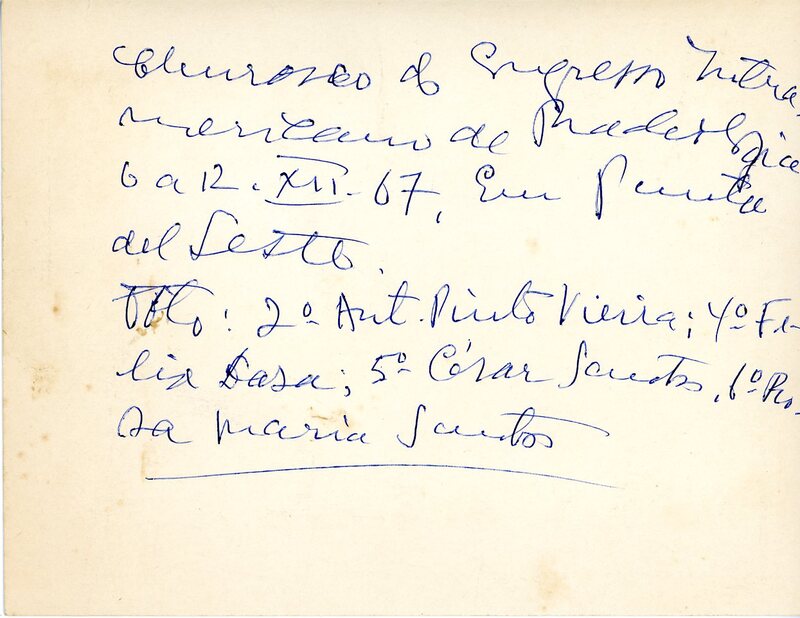 Churrasco do Congresso Intra-
mericano de Radiologia
6 a 12. XII-67, Em Punta
del Leste.
Foto: 2º Ant. Pinto Vieira; 4º Fe-
lix Sasa; 5º César Santos, 6º Ro-
sa Maria Santos